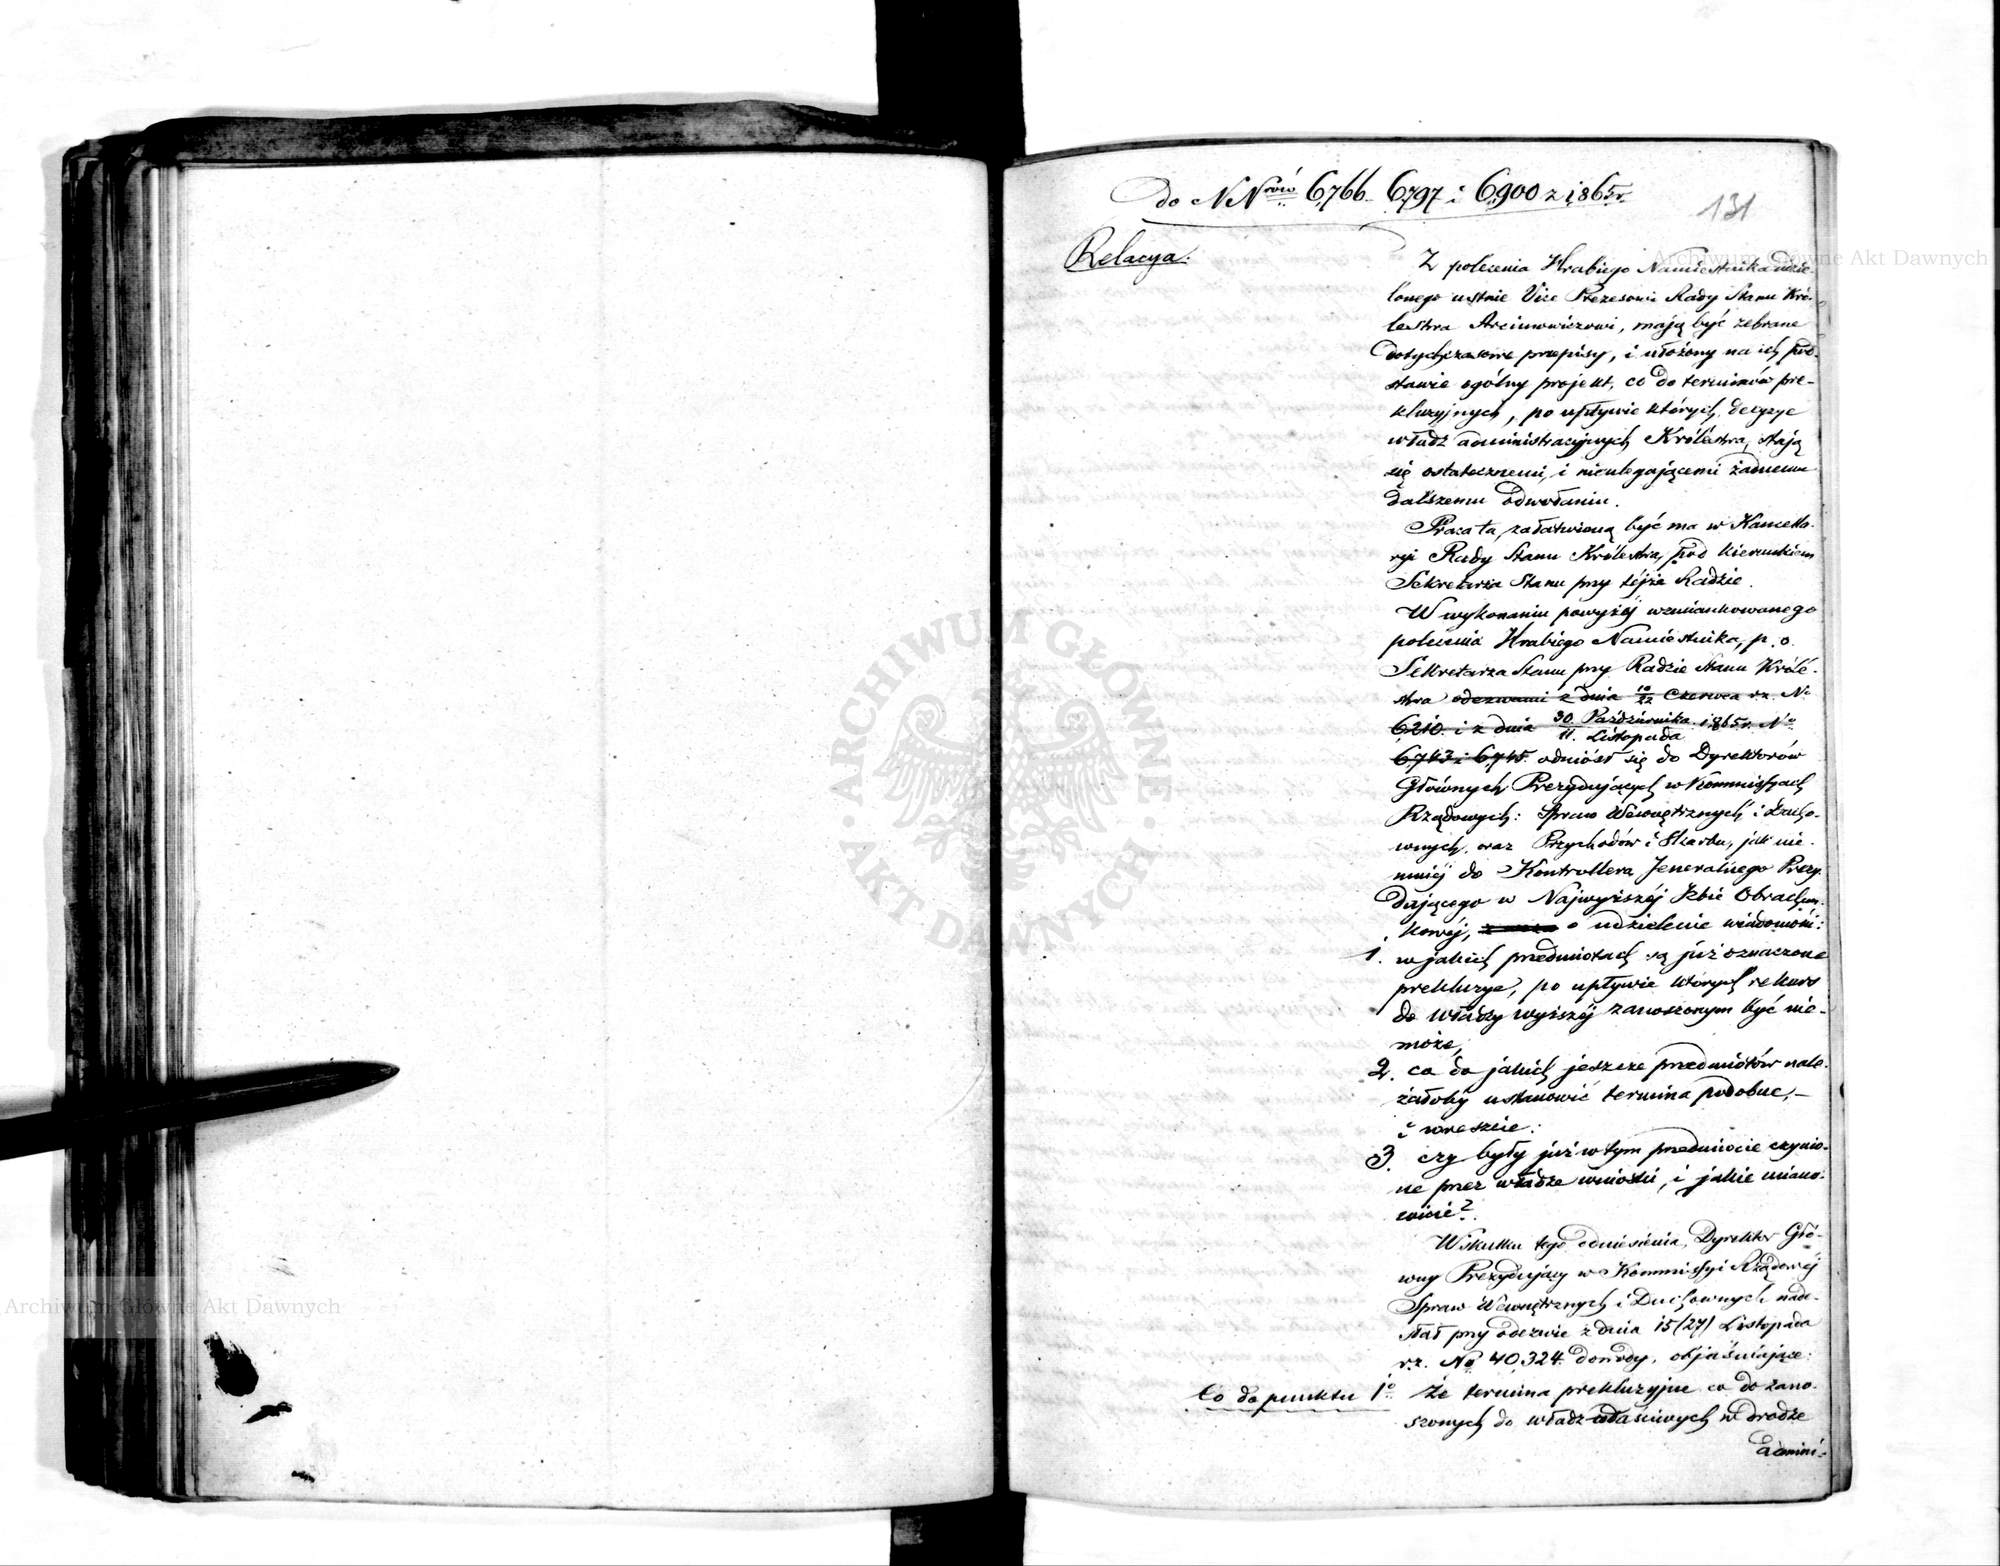 do NNrów 6,766. 6,797 i 6,900 z 1865 r.
131
Relacya.
Z polecenia Hrabiego Namiestnika udzie-
lonego ustnie Vice Prezesowi Rady Stanu Kró-
lestwa Arcimowiczowi, mają być zebrane
dotychczasowe przepisy, i ułożony na ich pod-
stawie ogólny projekt, co do terminów pre-
kluzyjnych, po upływie których, decyzye
władz administracyjnych Królestwa, stają
się ostatecznemi, i nieulegającemi żadnemu
dalszemu odwołaniu.
Praca ta, załatwioną być ma w Kancella-
ryi Rady Stanu Królestwa, pod kierunkiem
Sekretarza Stanu przy tejże Radzie.
W wykonaniu powyżéj wzmiankowanego
polecenia Hrabiego Namiestnika, p. o.
Sekretarza Stanu przy Radzie Stanu Króle-
stwa odezwami z dnia 10/22 Czerwca rz. No
6,210. i z dnia 30. Października/11. Listopada 1865 r. No
6,743 i 6,745. odniósł się do Dyrektorów
Głównych Prezydujących w Kommissyach
Rządowych: Spraw Wewnętrznych i Ducho-
wnych, oraz Przychodów i Skarbu, jak nie-
mniéj do Kontrollera Jeneralnego Prezy-
dującego w Najwyższéj Izbie Obrachun-
kowéj, o udzielenie wiadomości:
1. w jakich przedmiotach są już oznaczone
prekluzye, po upływie których rekurs
do władzy wyższéj zanoszonym być nie-
może,
2. co do jakich jeszcze przedmiotów nale-
żałoby ustanowić termina podobne, –
i wreszcie:
3. czy były już w tym przedmiocie czynio-
ne przez władze wnioski, i jakie miano-
wicie?
Wskutku tego odniesienia, Dyrektor Głó-
wny Prezydujący w Kommissyi Rządowéj
Spraw Wewnętrznych i Duchownych nade-
słał przy odezwie z dnia 15 (27) Listopada
rz. No 40,324. dowody, objaśniające:
Co do punktu 1o że termina prekluzyjne co do zano-
szonych do władz właściwych w drodze
admini-
Archiwum Główne Akt Dawnych
Archiwum Główne Akt Dawnych
ARCHIWUM GŁÓWNE
AKT DAWNYCH